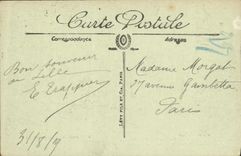 Carte Postale
Correspondance
Adresse
Bon souvenir
de Lille
E
31/8/19
LÉVY FILS ET Cie, PARIS
Madame Morgat
avenue Gambetta
Paris